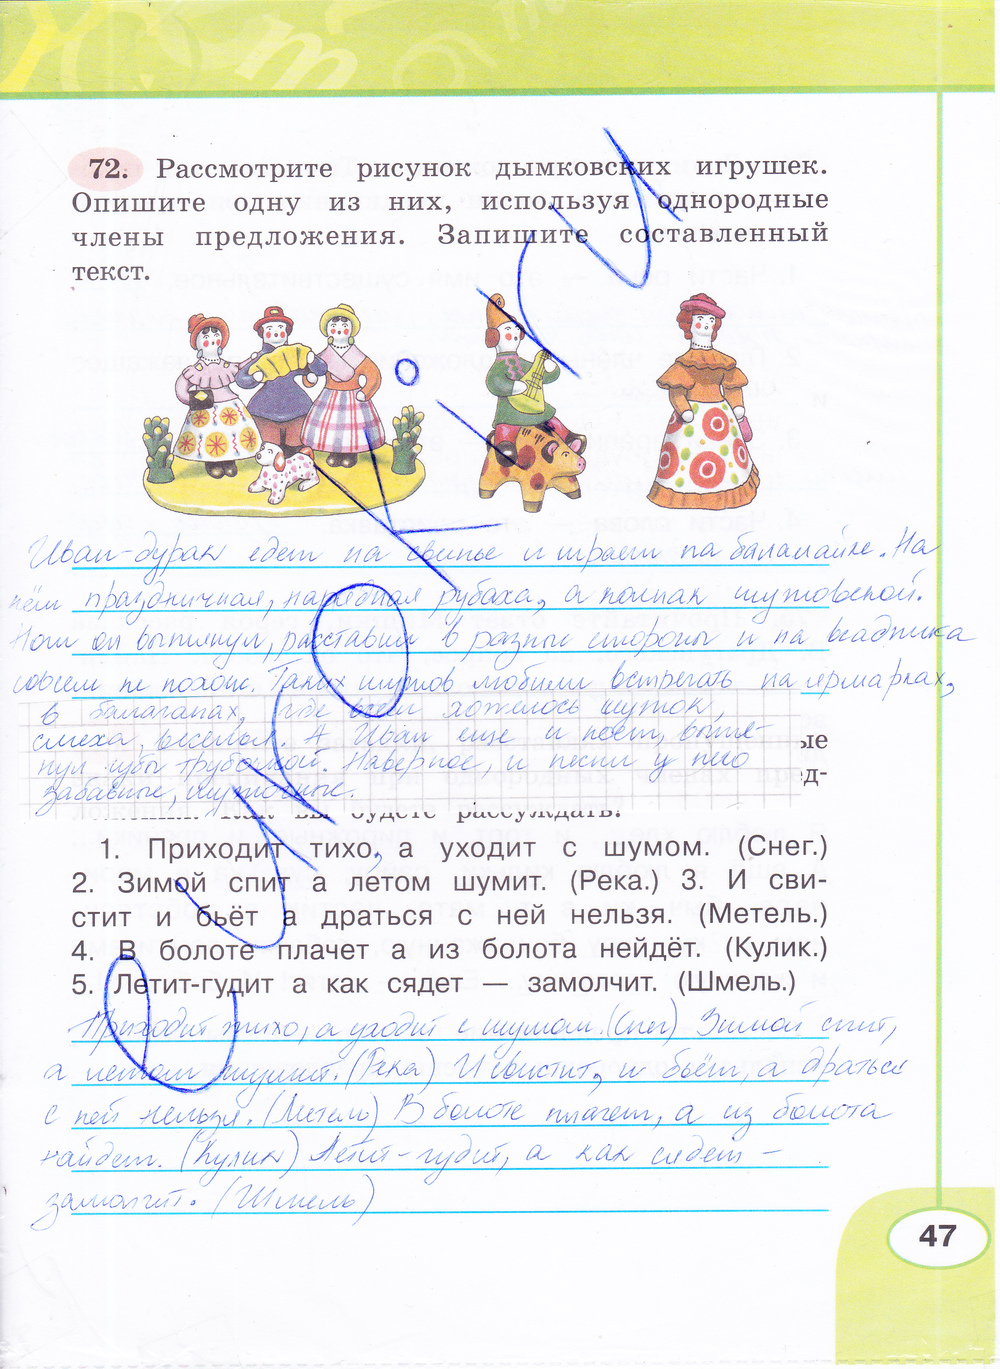 72. Рассмотрите рисунок дымковских игрушек.
Опишите одну из них, используя однородные
члены предложения. Запишите составленный
текст.
Иван-дурак едет на свинье и играет на балалайке. На
нём праздничная, нарядная рубаха, а колпак шутовской.
Ноги он вытянул, расставил в разные стороны и на всадника
совсем не похож. Таких шутов любили встречать на ярмарках,
в балаганах, где всем хотелось шуток,
смеха, веселья. А Иван еще и поет, вытя-
нул губы трубочкой. Наверное, и песни у него
ые
забавные, шуточные.
ед-
будете рассуждать?
1. Приходит тихо, а уходит с шумом. (Снег.)
2. Зимой спит а летом шумит. (Река.) 3. И сви-
стит и бьёт а драться с ней нельзя. (Метель.)
4. В болоте плачет а из болота нейдёт. (Кулик.)
5. Летит-гудит а как сядет — замолчит. (Шмель.)
Приходит тихо, а уходит с шумом. (Снег) Зимой спит,
а летом шумит. (Река) И свистит, и бьёт, а драться
с ней нельзя. (Метель) В болоте плачет, а из болота
найдет. (Кулик) Летит-гудит, а как сядет –
замолчит. (Шмель)
47